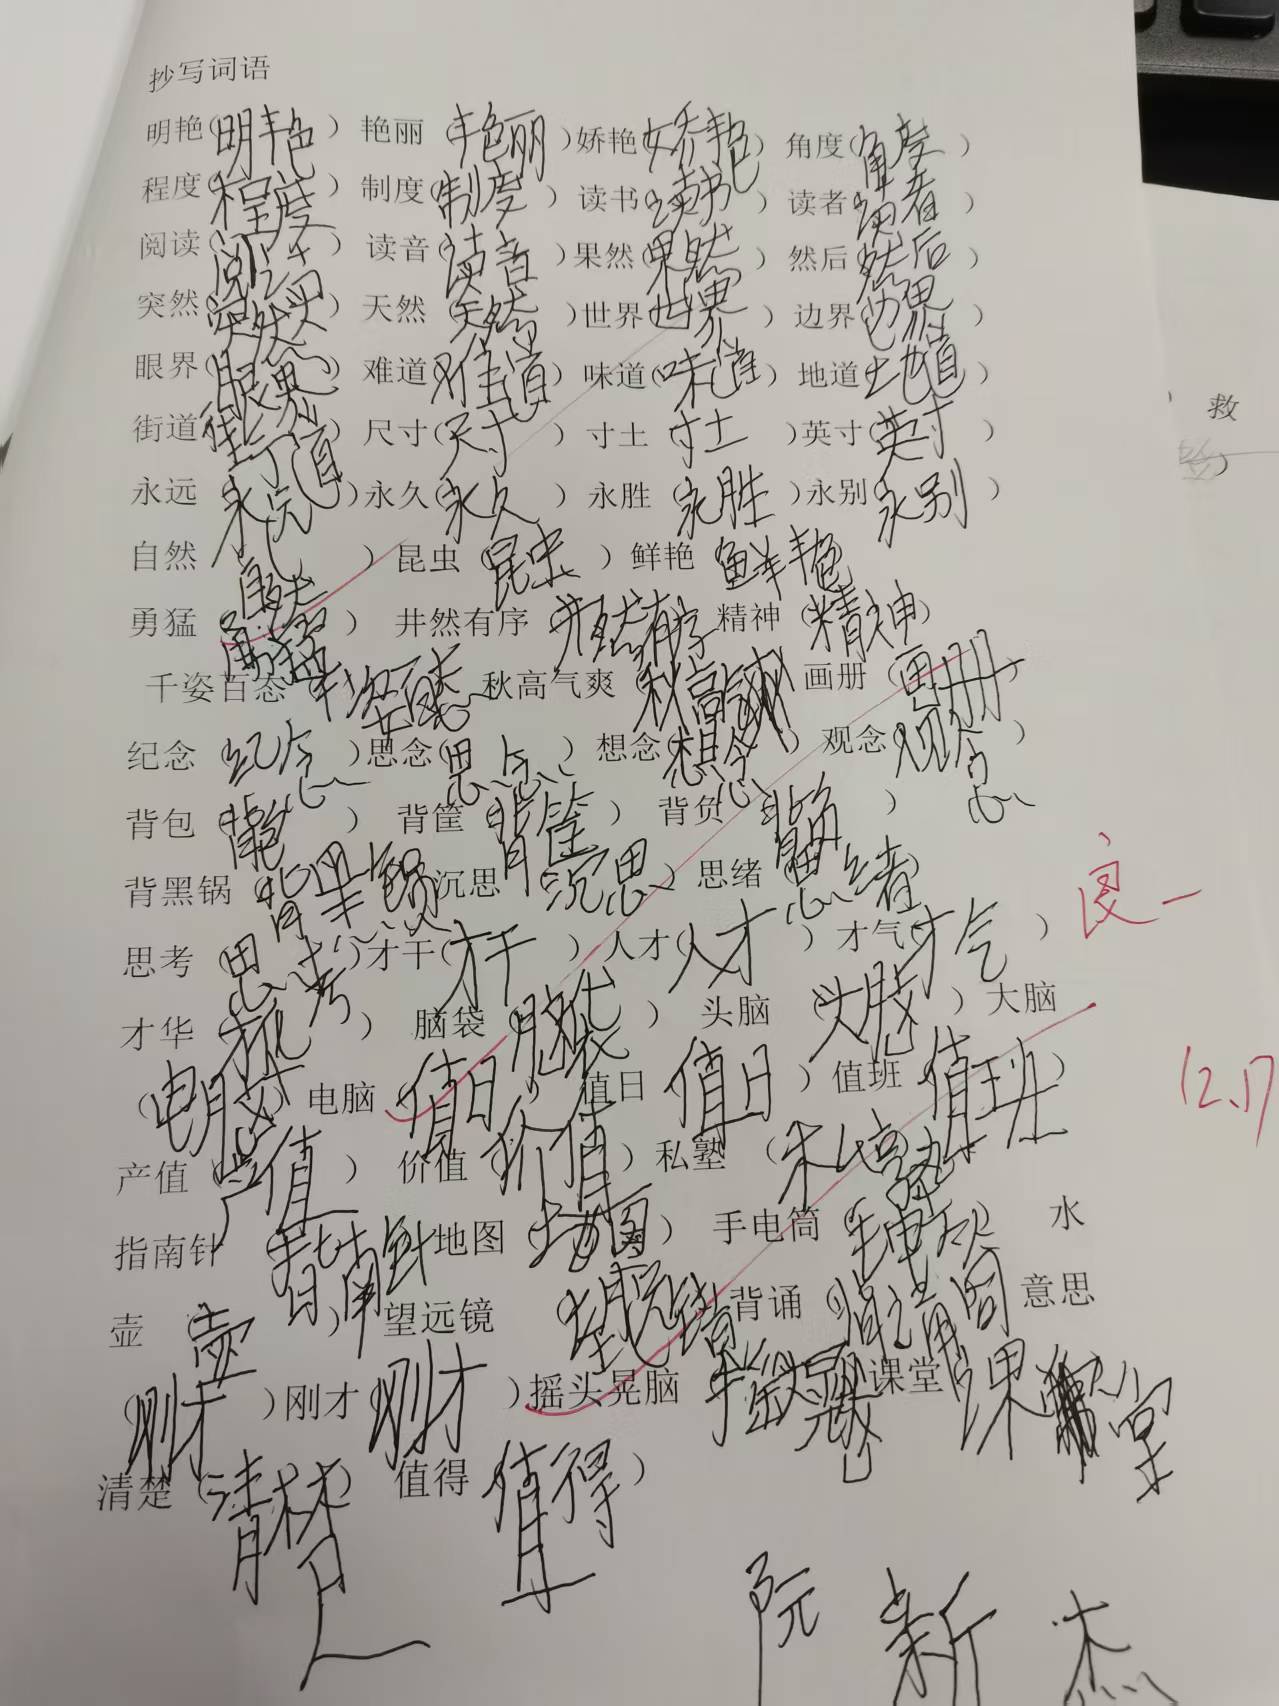 抄写词语
明艳(明艳) 艳丽(艳丽)娇艳(娇艳) 角度(角度)
程度(程度) 制度(制度) 读书(读书) 读者(读者)
阅读(阅读) 读音(读音)果然(果然) 然后(然后)
突然(突然) 天然(天然)世界(世界) 边界(边界)
眼界(眼界) 难道(难道) 味道(味道) 地道(地道)
街道(街道) 尺寸(尺寸) 寸土(寸土)英寸(英寸)
永远(永远)永久(永久) 永胜(永胜)永别(永别)
自然(自然) 昆虫(昆虫)鲜艳 鲜艳
勇猛(勇猛) 井然有序(井然有序 精神(精神)
千姿百态(千姿百态 秋高气爽(秋高气爽 画册(画册)
纪念(纪念)思念(思念) 想念(想念) 观念(观念)
背包(背包) 背筐(背筐) 背负(背负)
背黑锅(背黑锅 沉思 沉思)思绪(思绪
思考(思考)才干(才干)人才(人才)才气(才气)
才华(才华) 脑袋(脑袋) 头脑(头脑)大脑
(电脑) 电脑(值日) 值日 值日)值班(值班)
产值(产值) 价值(价值)私塾(私塾
指南针(指南针 地图(地图) 手电筒(手电筒) 水
壶(壶) 望远镜(望远镜 背诵(背诵 意思
(刚才)刚才(刚才)摇头晃脑 摇头晃脑 课堂 课堂
清楚(清楚) 值得(值得)
良-
12.17
阮新杰
救